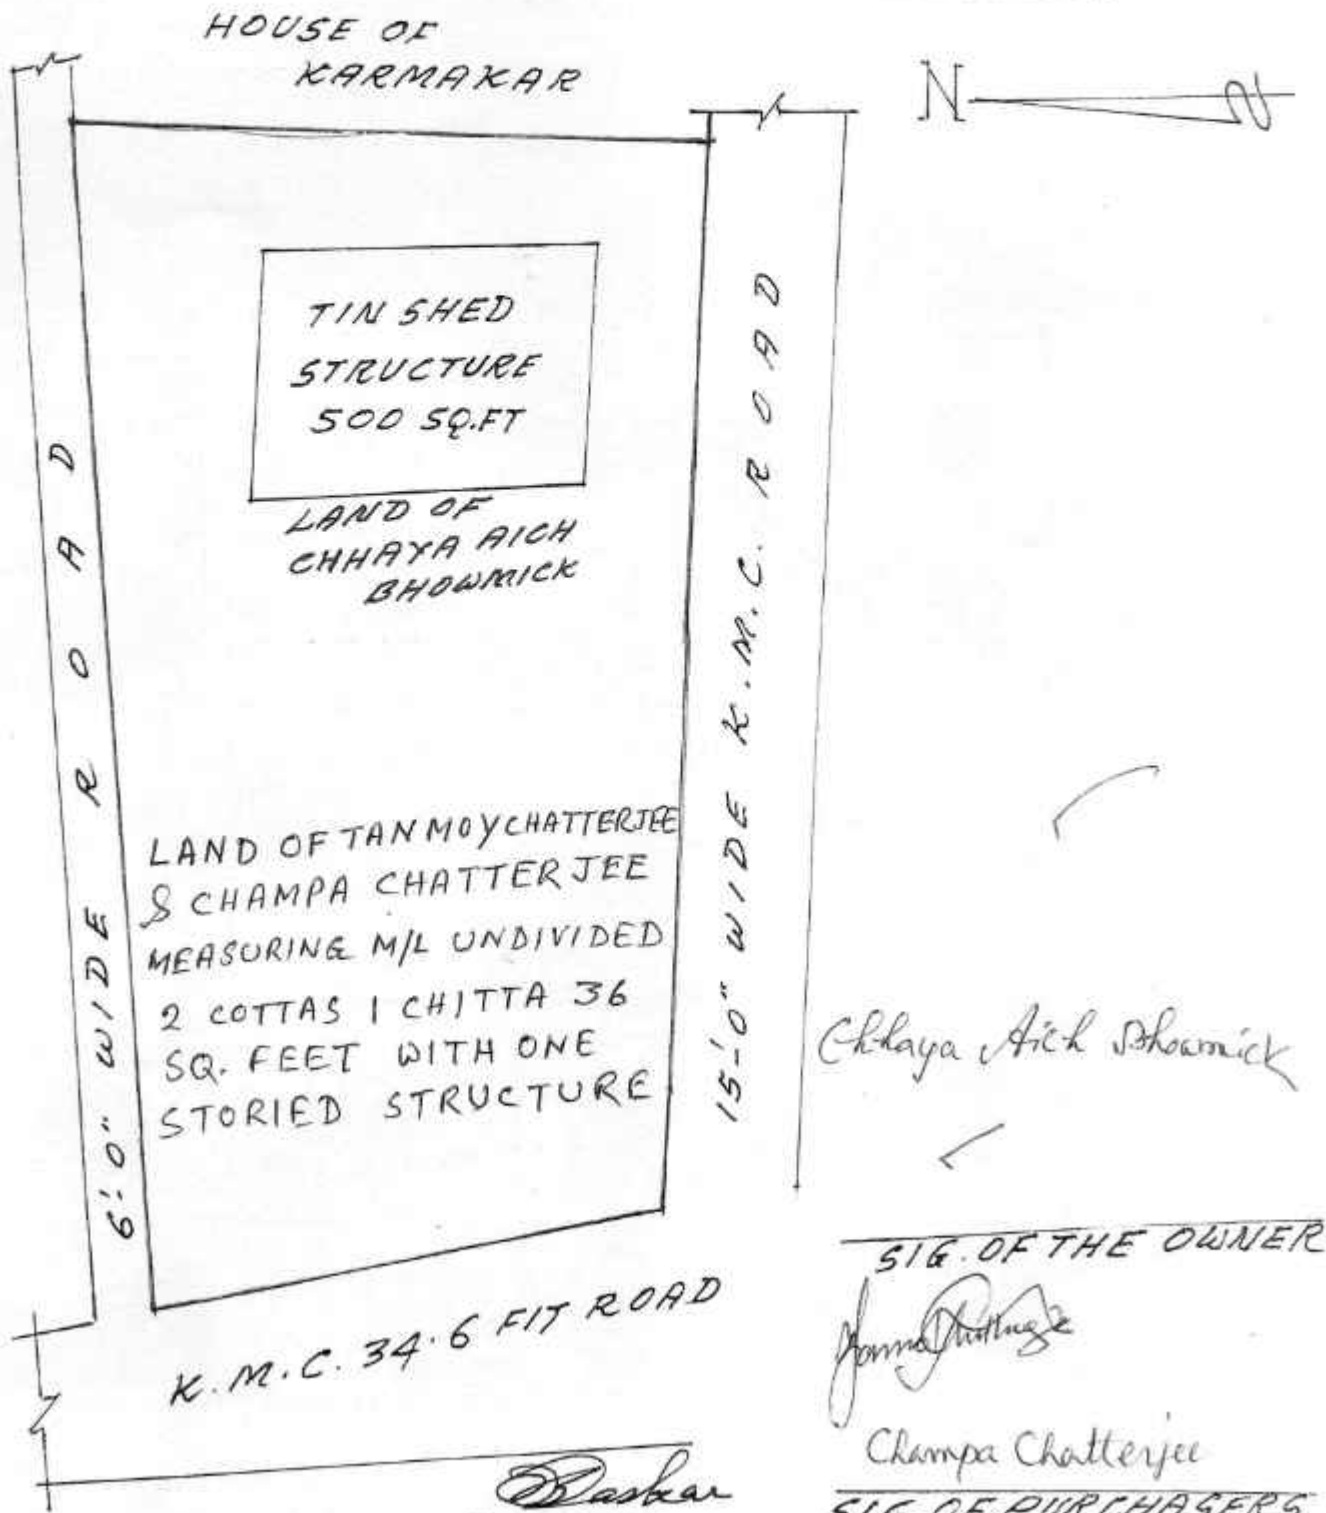 HOUSE OF
KARMAKAR
N
TIN SHED
STRUCTURE
500 SQ.FT
LAND OF
CHHAYA AICH
BHOWMICK
6'-0" WIDE ROAD
15'-0" WIDE K.M.C. ROAD
LAND OF TANMOY CHATTERJEE
& CHAMPA CHATTERJEE
MEASURING M/L UNDIVIDED
2 COTTAS 1 CHITTA 36
SQ. FEET WITH ONE
STORIED STRUCTURE
K.M.C. 34.6 FIT ROAD
Chhaya Aich Bhowmick
SIG. OF THE OWNER
Champa Chatterjee
SIG OF PURCHASERS